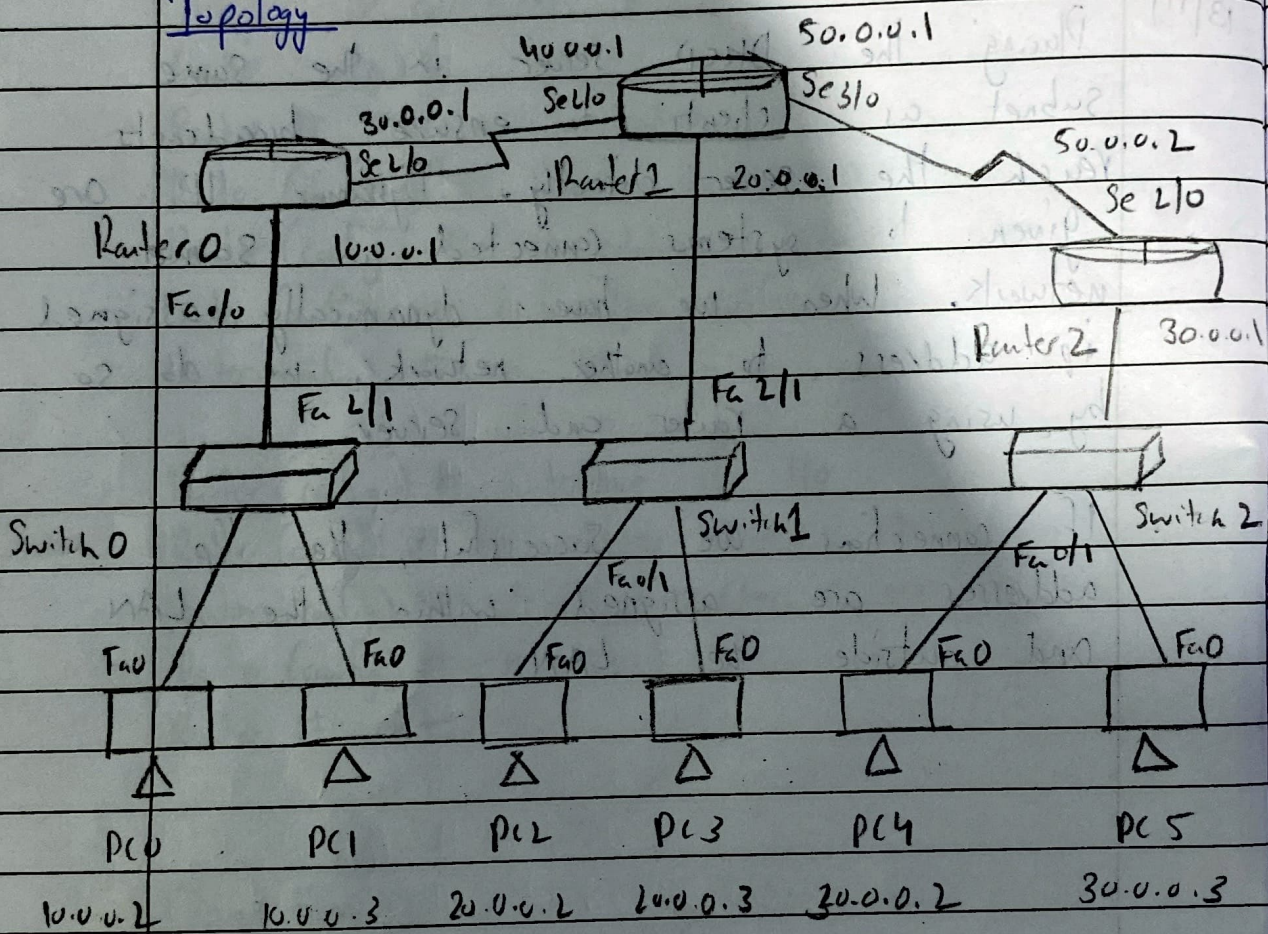 Topology
40.0.0.1
50.0.0.1
30.0.0.1
Se2/0
Se3/0
Se2/0
50.0.0.2
Router 1
20.0.0.1
Se 2/0
Router 0
10.0.0.1
Fa0/0
Router 2
30.0.0.1
Fa 2/1
Fa 2/1
Switch 0
Switch 1
Switch 2
Fa0/1
Fa0/1
Fa0
Fa0
Fa0
Fa0
Fa0
Fa0
PC0
PC1
PC2
PC3
PC4
PC5
10.0.0.2
10.0.0.3
20.0.0.2
20.0.0.3
30.0.0.2
30.0.0.3